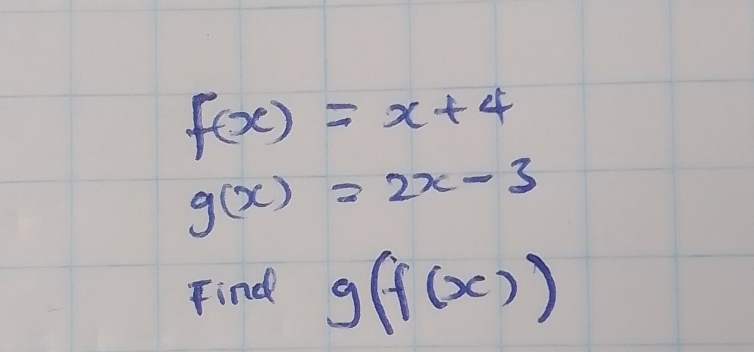 f(x) = x + 4
g(x) = 2x - 3
Find g(f(x))